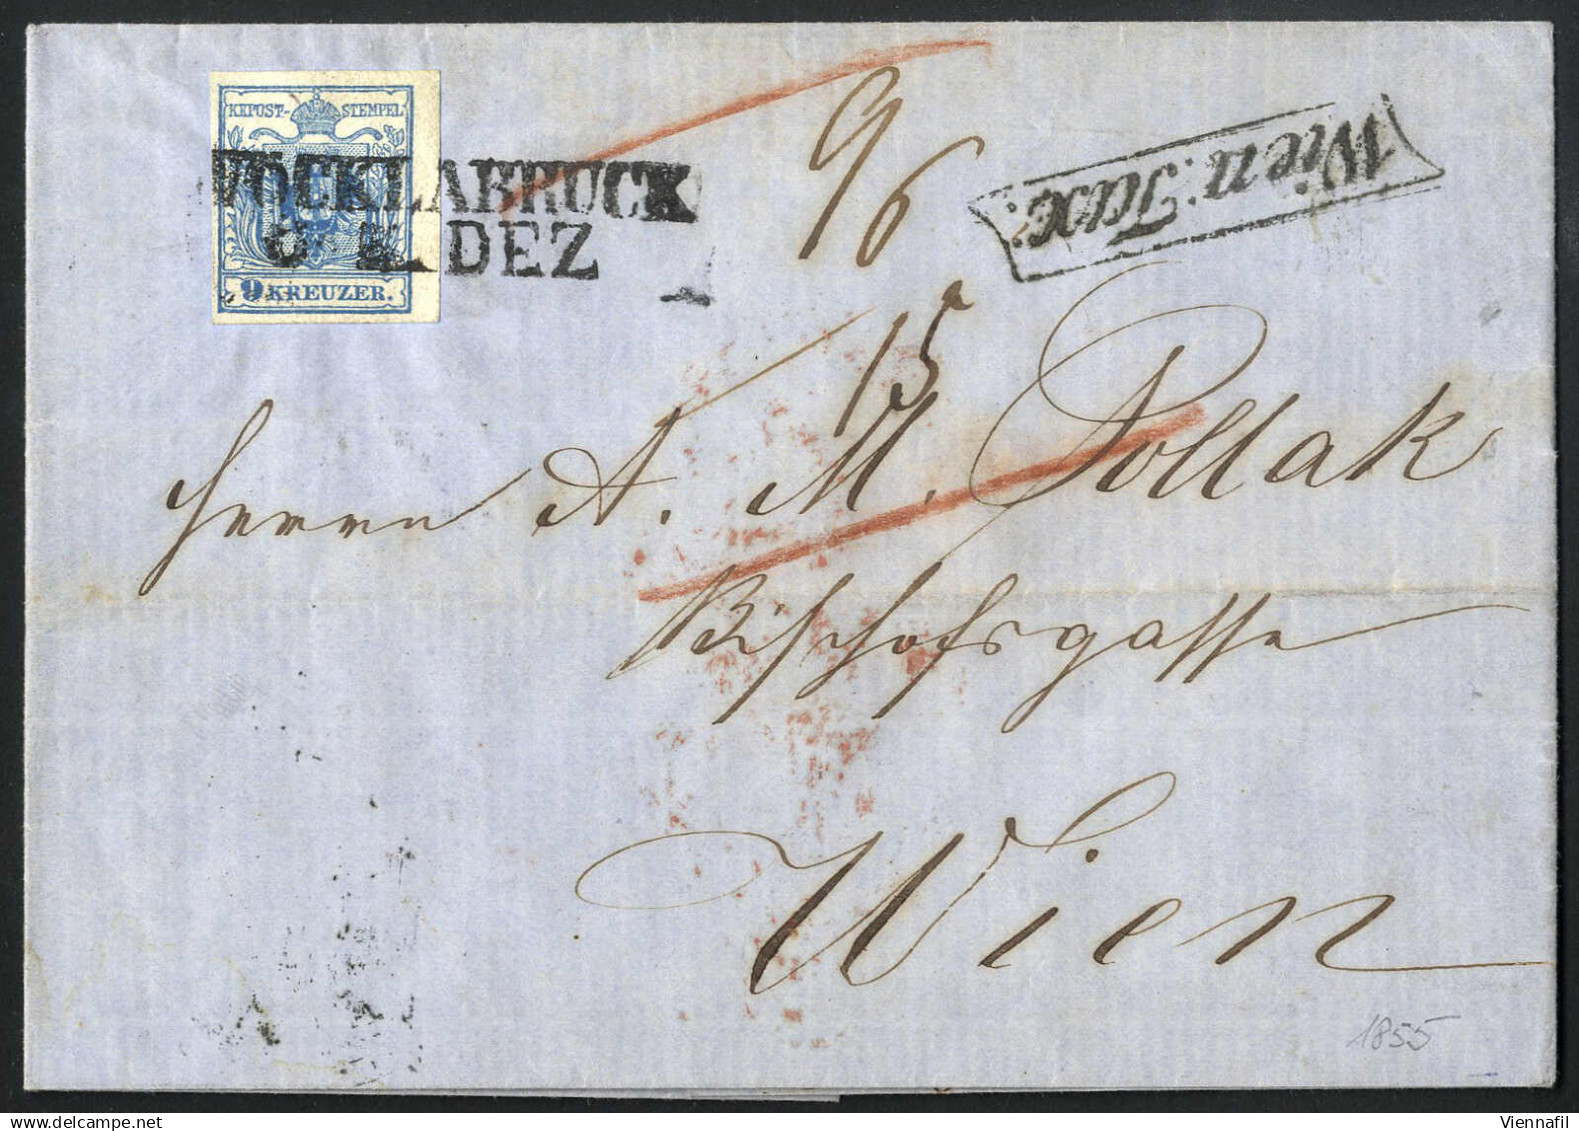 KKPOST-STEMPEL
9 KREUZER.
VÖCKLABRUCK
DEZ
9/6
Wien: Tax:
15
Herrn A. M. Pollak
Bischofsgasse
Wien
1855
Viennafil